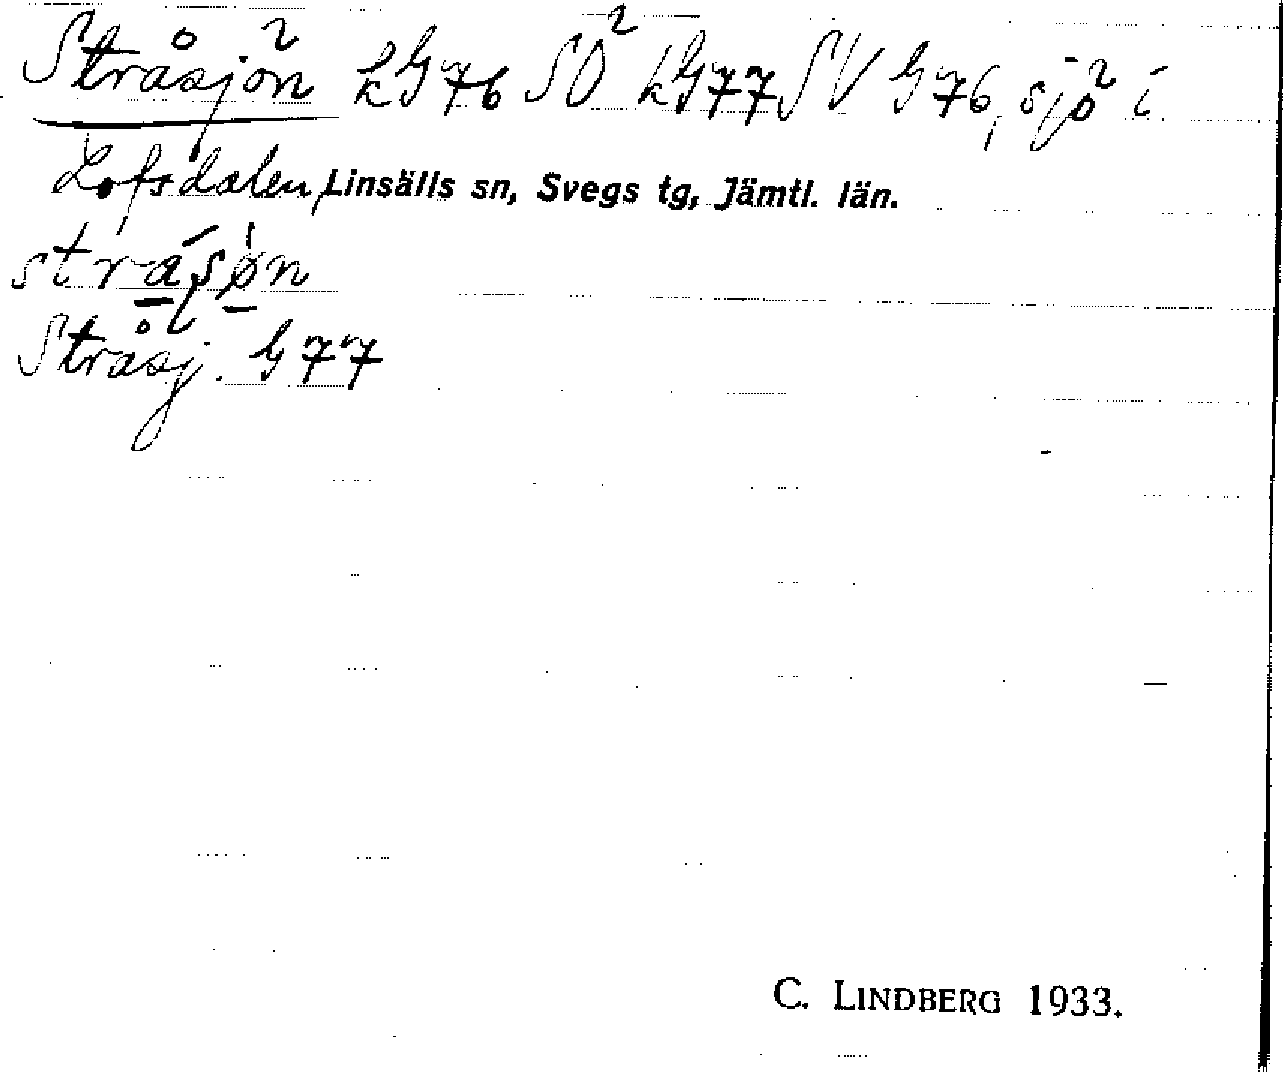 Stråsjön LG76 SO LG77 SV G76, sjö i
Lofsdalen, Linsälls sn, Svegs tg, Jämtl. län.
Stråsj. G77
C. LINDBERG 1933.